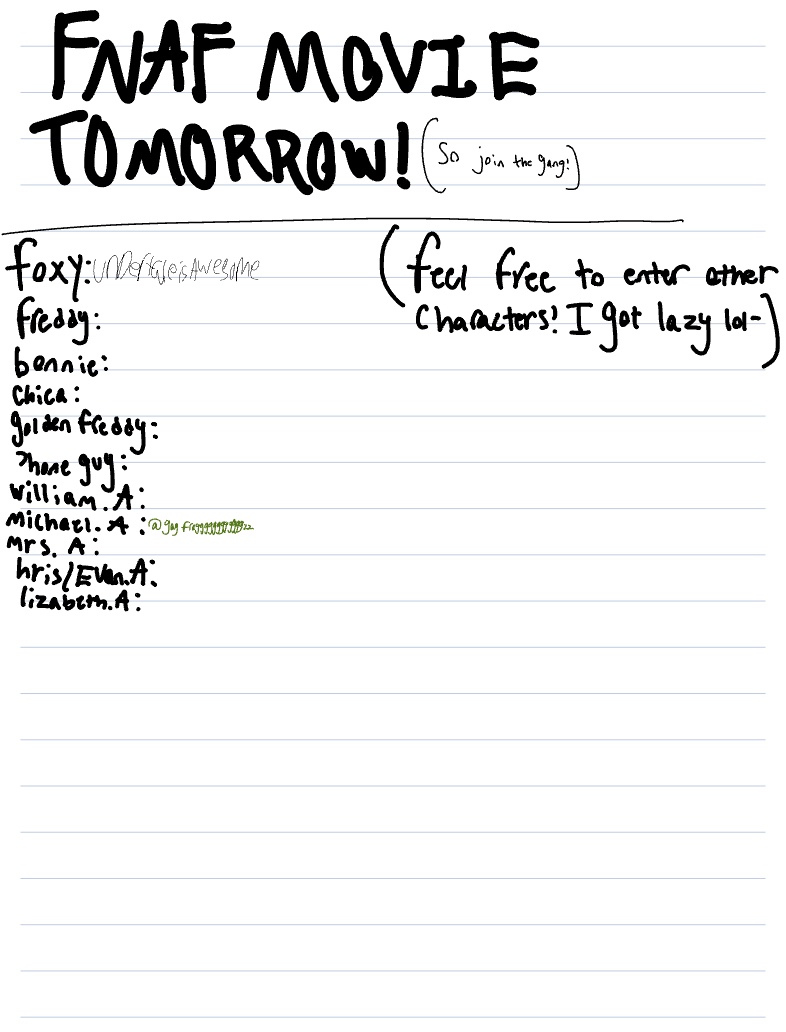 FNAF MOVIE
TOMORROW! (So join the gang!)
foxy: UNDertaleisAwesome
(feel free to enter other
characters! I got lazy lol-)
freddy:
bonnie:
chica:
golden freddy:
Phone guy:
William. A:
Michael. A:
Mrs. A:
hris/Evan.A:
lizabeth.A: